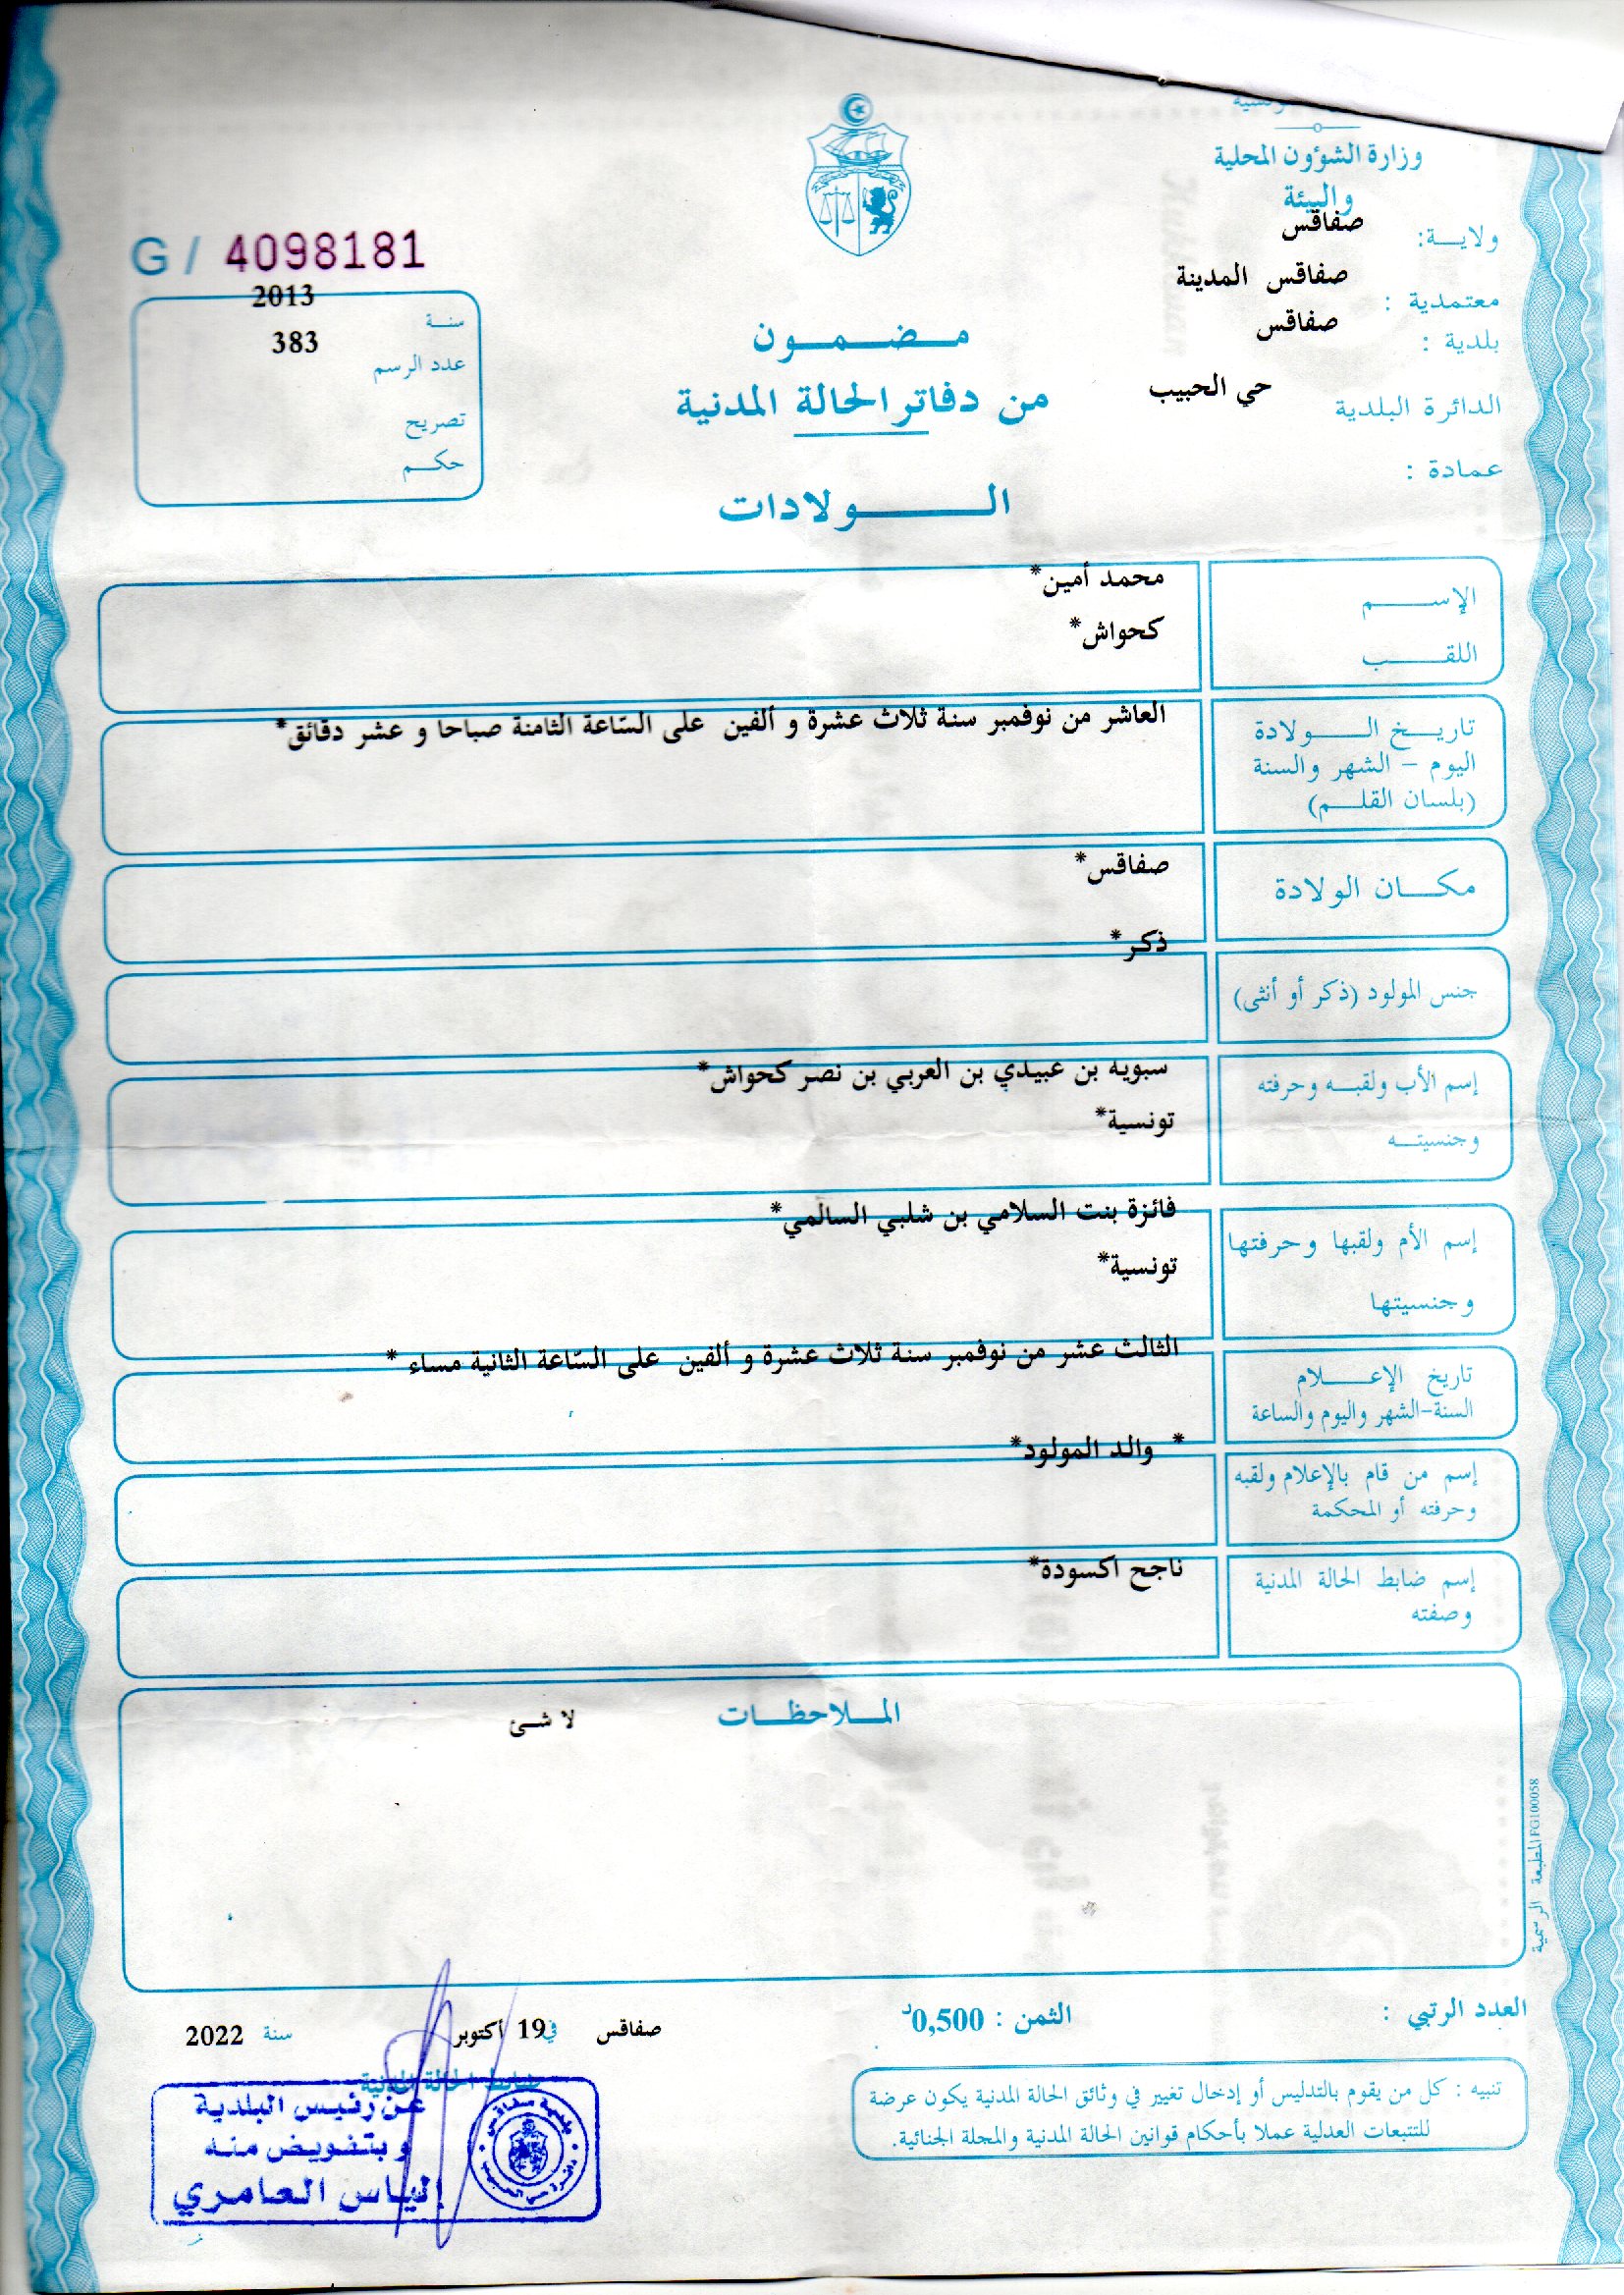 وزارة الشؤون المحلية
والبيئة
ولاية: صفاقس
معتمدية : صفاقس المدينة
بلدية : صفاقس
الدائرة البلدية حي الحبيب
عمادة :
G / 4098181
سنة 2013
عدد الرسم 383
تصريح
حكم
مضمون
من دفاتر الحالة المدنية
الولادات
الإسم محمد أمين*
اللقب كحواش*
تاريخ الولادة
اليوم - الشهر والسنة
(بلسان القلم)
العاشر من نوفمبر سنة ثلاث عشرة و ألفين على السّاعة الثامنة صباحا و عشر دقائق*
مكان الولادة صفاقس*
جنس المولود (ذكر أو أنثى) ذكر*
إسم الأب ولقبه وحرفته
وجنسيته
سبويه بن عبيدي بن العربي بن نصر كحواش*
تونسية*
إسم الأم ولقبها وحرفتها
وجنسيتها
فائزة بنت السلامي بن شلبي السالمي*
تونسية*
تاريخ الإعلام
السنة-الشهر واليوم والساعة
الثالث عشر من نوفمبر سنة ثلاث عشرة و ألفين على السّاعة الثانية مساء *
إسم من قام بالإعلام ولقبه
وحرفته أو المحكمة
* والد المولود*
إسم ضابط الحالة المدنية
وصفته
ناجح اكسودة*
الملاحظات
لا شئ
المطبعة الرسمية FG100058
العدد الرتبي :
الثمن : 0,500د
صفاقس في 19 أكتوبر سنة 2022
ضابط الحالة المدنية
عن رئيس البلدية
وبتفويض منه
إلياس العامري
تنبيه : كل من يقوم بالتدليس أو إدخال تغيير في وثائق الحالة المدنية يكون عرضة
للتتبعات العدلية عملا بأحكام قوانين الحالة المدنية والمجلة الجنائية.